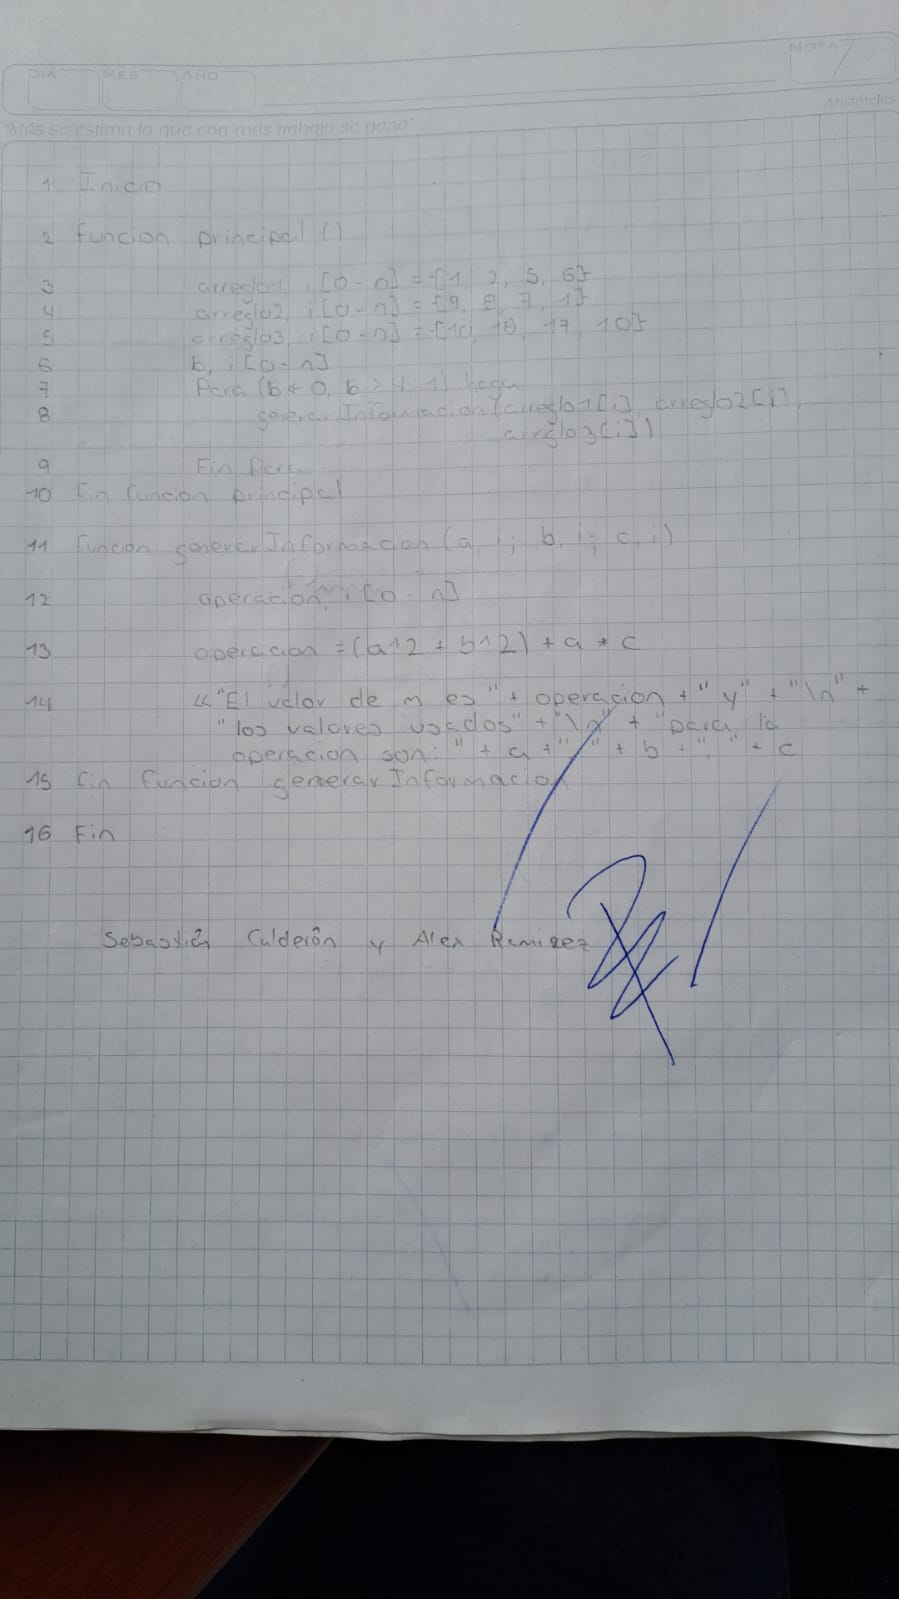 NOTA
DIA MES AÑO
Aristóteles
"Más se estima lo que con más trabajo se gana"
1 Inicio
2 funcion principal ()
3 arreglo1, i [0 - n] = {1, 2, 5, 6}
4 arreglo2, i [0 - n] = {9, 8, 7, 1}
5 arreglo3, i [0 - n] = {10, 18, 17, 10}
6 b, i [0 - n]
7 Para (b ← 0, b > 4, 1) haga
8 generar Informacion (arreglo1[i], arreglo2[i],
arreglo3[i])
9 Fin Para
10 fin funcion principal
11 funcion generar Informacion (a, i; b, i; c, i)
12 operacion, i [0 - n]
13 operacion = (a^2 + b^2) + a * c
14 << "El valor de m es " + operacion + " y" + "\n" +
"los valores usados" + "\n" + "para la
operacion son: " + a + " " + b + "," + c
15 fin funcion generar Informacion
16 Fin
Sebastián Calderón y Alex Ramirez